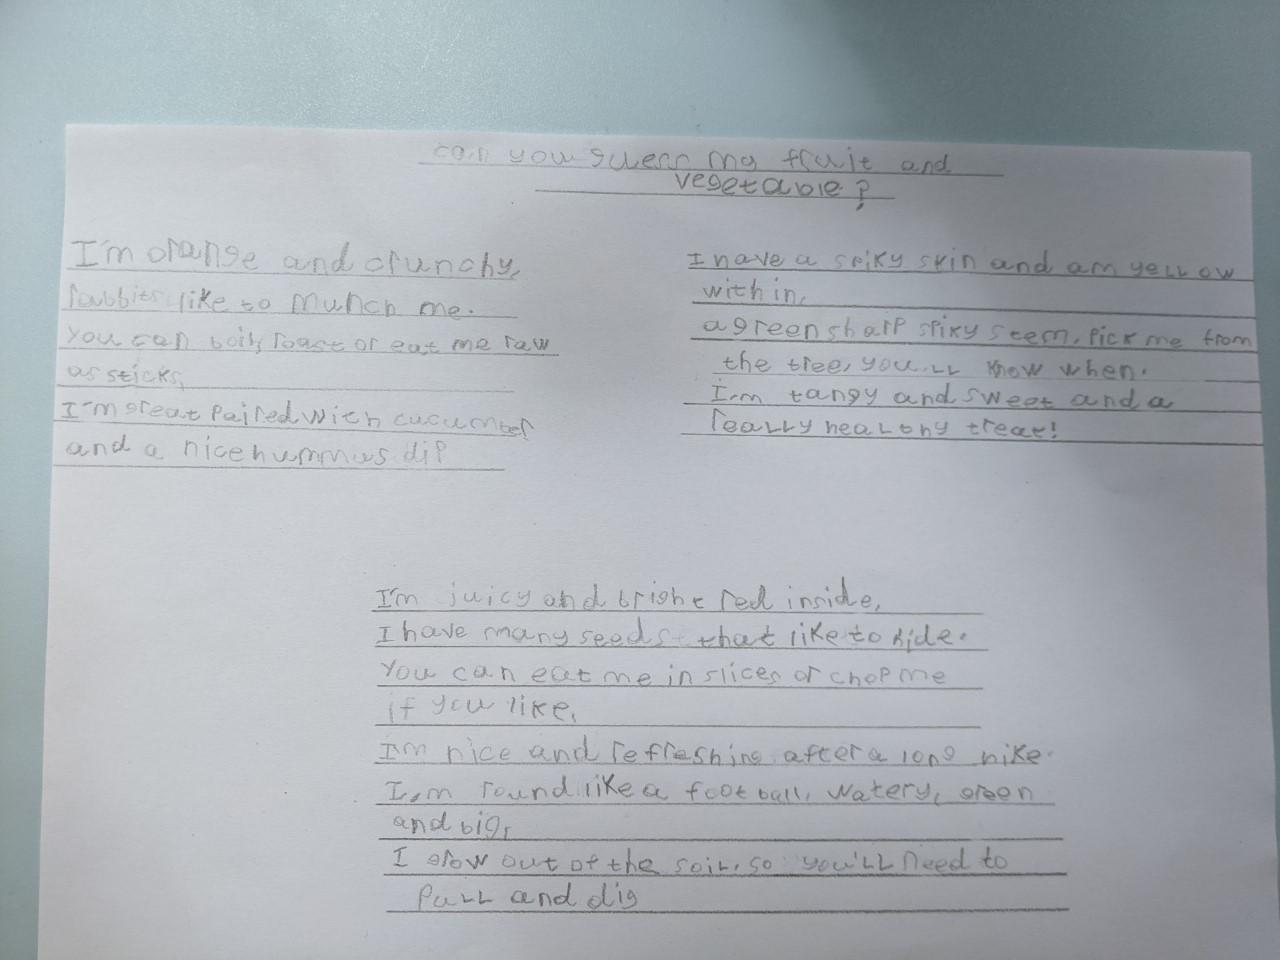 can you guess my fruit and
vegetable?
I'm orange and crunchy,
rabbits like to munch me.
you can boil, roast or eat me raw
as sticks,
I'm great paired with cucumber
and a nice hummus dip
I have a spiky skin and am yellow
within,
a green sharp spiky stem. Pick me from
the tree, you'll know when.
I'm tangy and sweet and a
really healthy treat!
I'm juicy and bright red inside,
I have many seeds that like to hide.
You can eat me in slices or chop me
if you like,
I'm nice and refreshing after a long hike.
I'm round like a football, watery, green
and big,
I grow out of the soil, so you'll need to
pull and dig